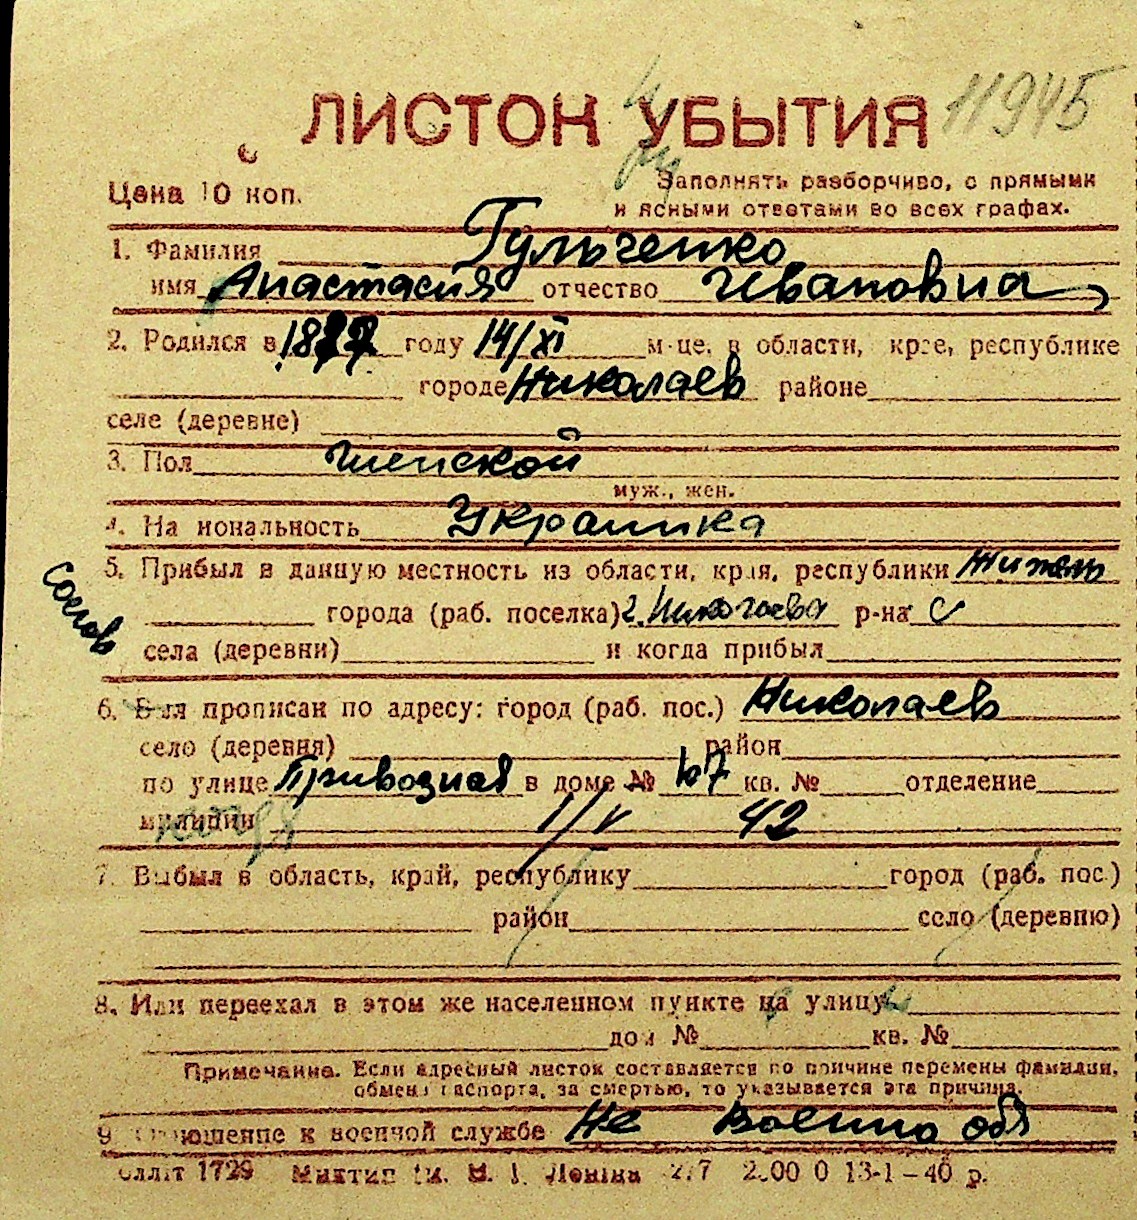 11945
ЛИСТОК УБЫТИЯ
Цена 10 коп.
Заполнять разборчиво, с прямыми
и ясными ответами во всех графах.
1. Фамилия Гульченко
имя Анастасия отчество Ивановна
2. Родился в году 14/XI м-це, в области, крае, республике
городе Николаев районе
селе (деревне)
3. Пол женской
муж., жен.
4. На иональность Украинка
5. Прибыл в данную местность из области, края, республики Житель
города (раб. поселка) г. Николаева р-на с
села (деревни) и когда прибыл
6. Был прописан по адресу: город (раб. пос.) Николаев
село (деревня) район
по улице Привозная в доме № 107 кв. № отделение
милиции 1/V 42
7. Выбыл в область, край, республику город (раб. пос.)
район село (деревню)
8. Или переехал в этом же населенном пункте на улицу
дом № кв. №
Примечание. Если адресный листок составляется по причине перемены фамилии,
обмена паспорта, за смертью, то указывается эта причина.
9. Отношение к военной службе Не Военно обя
Обллит 1729 Миктип им. В. І. Леніна 277 13-1-40 р.